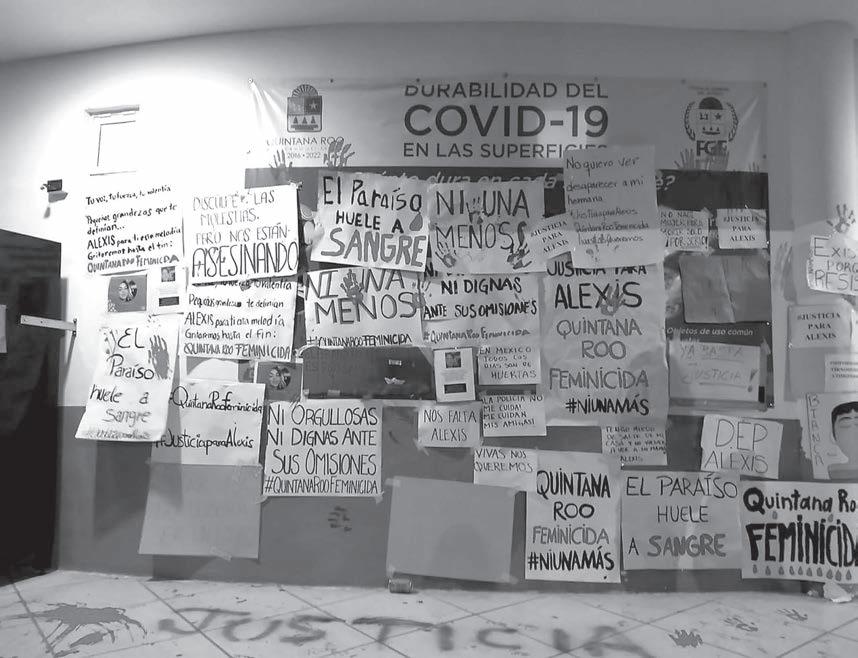 DURABILIDAD DEL
COVID-19
EN LAS SUPERFICIES
QUINTANA ROO
2016 - 2022
FGE
Tu voz, tu fuerza, tu valentía
Pequeñas grandezas que te
definían...
ALEXIS para ti esta melodía
Gritaremos hasta el fin:
QUINTANA ROO FEMINICIDA
DISCULPE LAS
MOLESTIAS,
PERO NOS ESTÁN
ASESINANDO
El Paraíso
HUELE A
SANGRE
NI UNA
MENOS
No quiero ver
desaparecer a mi
hermana
#JUSTICIA
PARA
ALEXIS
NO NACÍ
MUJER PARA
MORIR SOLO
POR SERLO
#JUSTICIA
PARA
ALEXIS
EXIS
PORQ
RESIS
valentía
te definían
ALEXIS para ti esta melodía
Gritaremos hasta el fin:
QUINTANA ROO FEMINICIDA
NI UNA
MENOS
#QUINTANAROOFEMINICIDA
NI DIGNAS
ANTE
SUS OMISIONES
#QUINTANA ROO FEMINICIDA
JUSTICIA PARA
ALEXIS
QUINTANA
ROO
FEMINICIDA
#NIUNAMÁS
Objetos de uso común
YA BASTA
JUSTICIA
#JUSTICIA
PARA
ALEXIS
"EL
Paraíso
huele a
Sangre
#QuintanaRoofeminicida
#JusticiaparaAlexis
EN MÉXICO
TODOS LOS
DÍAS SON DE
MUERTAS
LA POLICÍA NO
ME CUIDA!
ME CUIDAN
MIS AMIGAS!
NI ORGULLOSAS
NI DIGNAS ANTE
SUS OMISIONES
#QUINTANAROOFEMINICIDA
NOS FALTA
ALEXIS
VIVAS NOS
QUEREMOS
TENGO MIEDO
DE SALIR DE MI
CASA Y NO VOLVER
A VER A MI MAMÁ
ALEXIS
DEP
ALEXIS
BIANCA
QUINTANA
ROO
FEMINICIDA
#NIUNAMÁS
EL PARAÍSO
HUELE
A SANGRE
Quintana Ro
FEMINICIDA
JUSTICIA